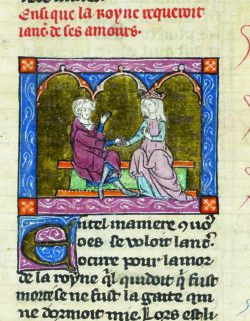 Ensi que la royne requeroit
lanc̄ de ses amours.
En tel maniere q̄
se veloit lanc̄
pour lamor
de la royne q̄l quidoit q̄ fust
morte se ne fust la gaite qui
ne dormoit mie. Lors esli